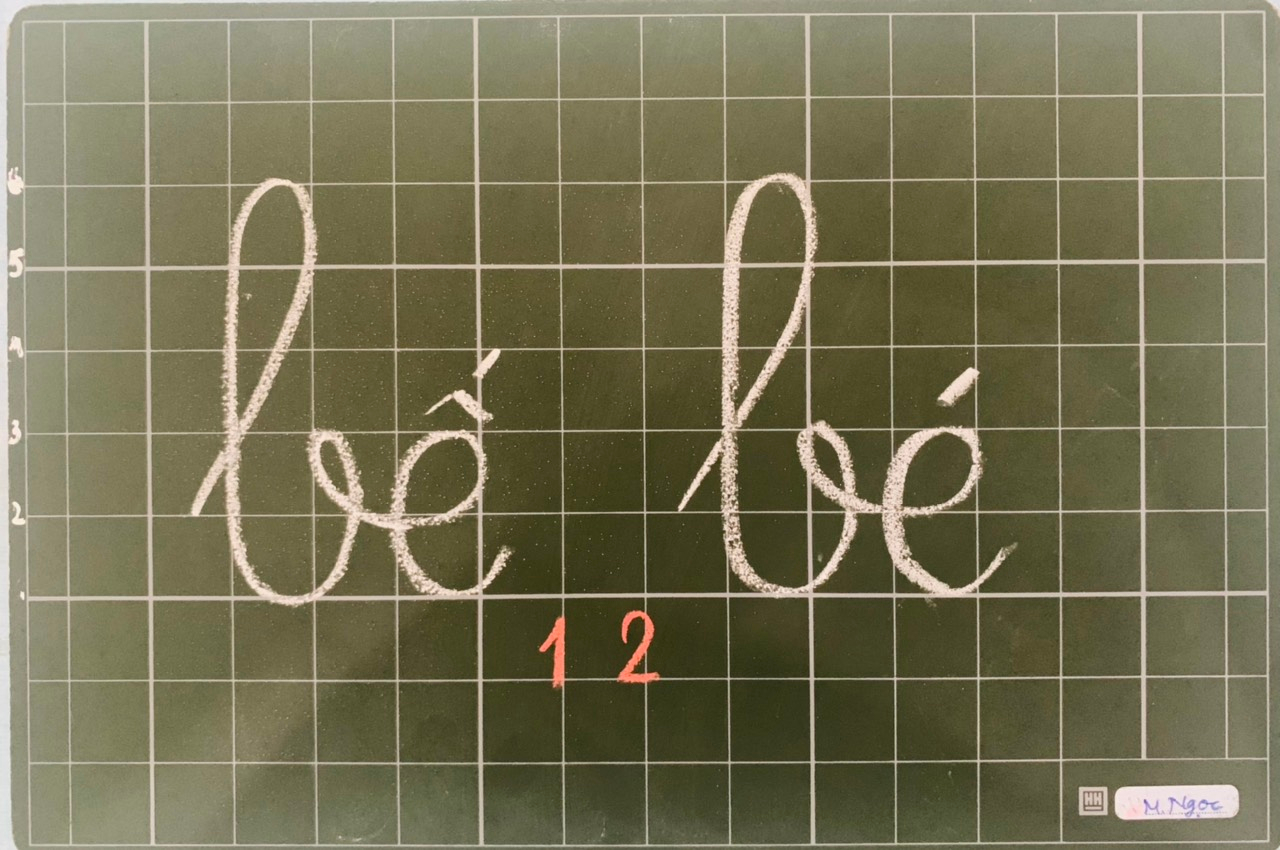 6
5
4
3
2
bế bé
1 2
HH
M.Ngọc